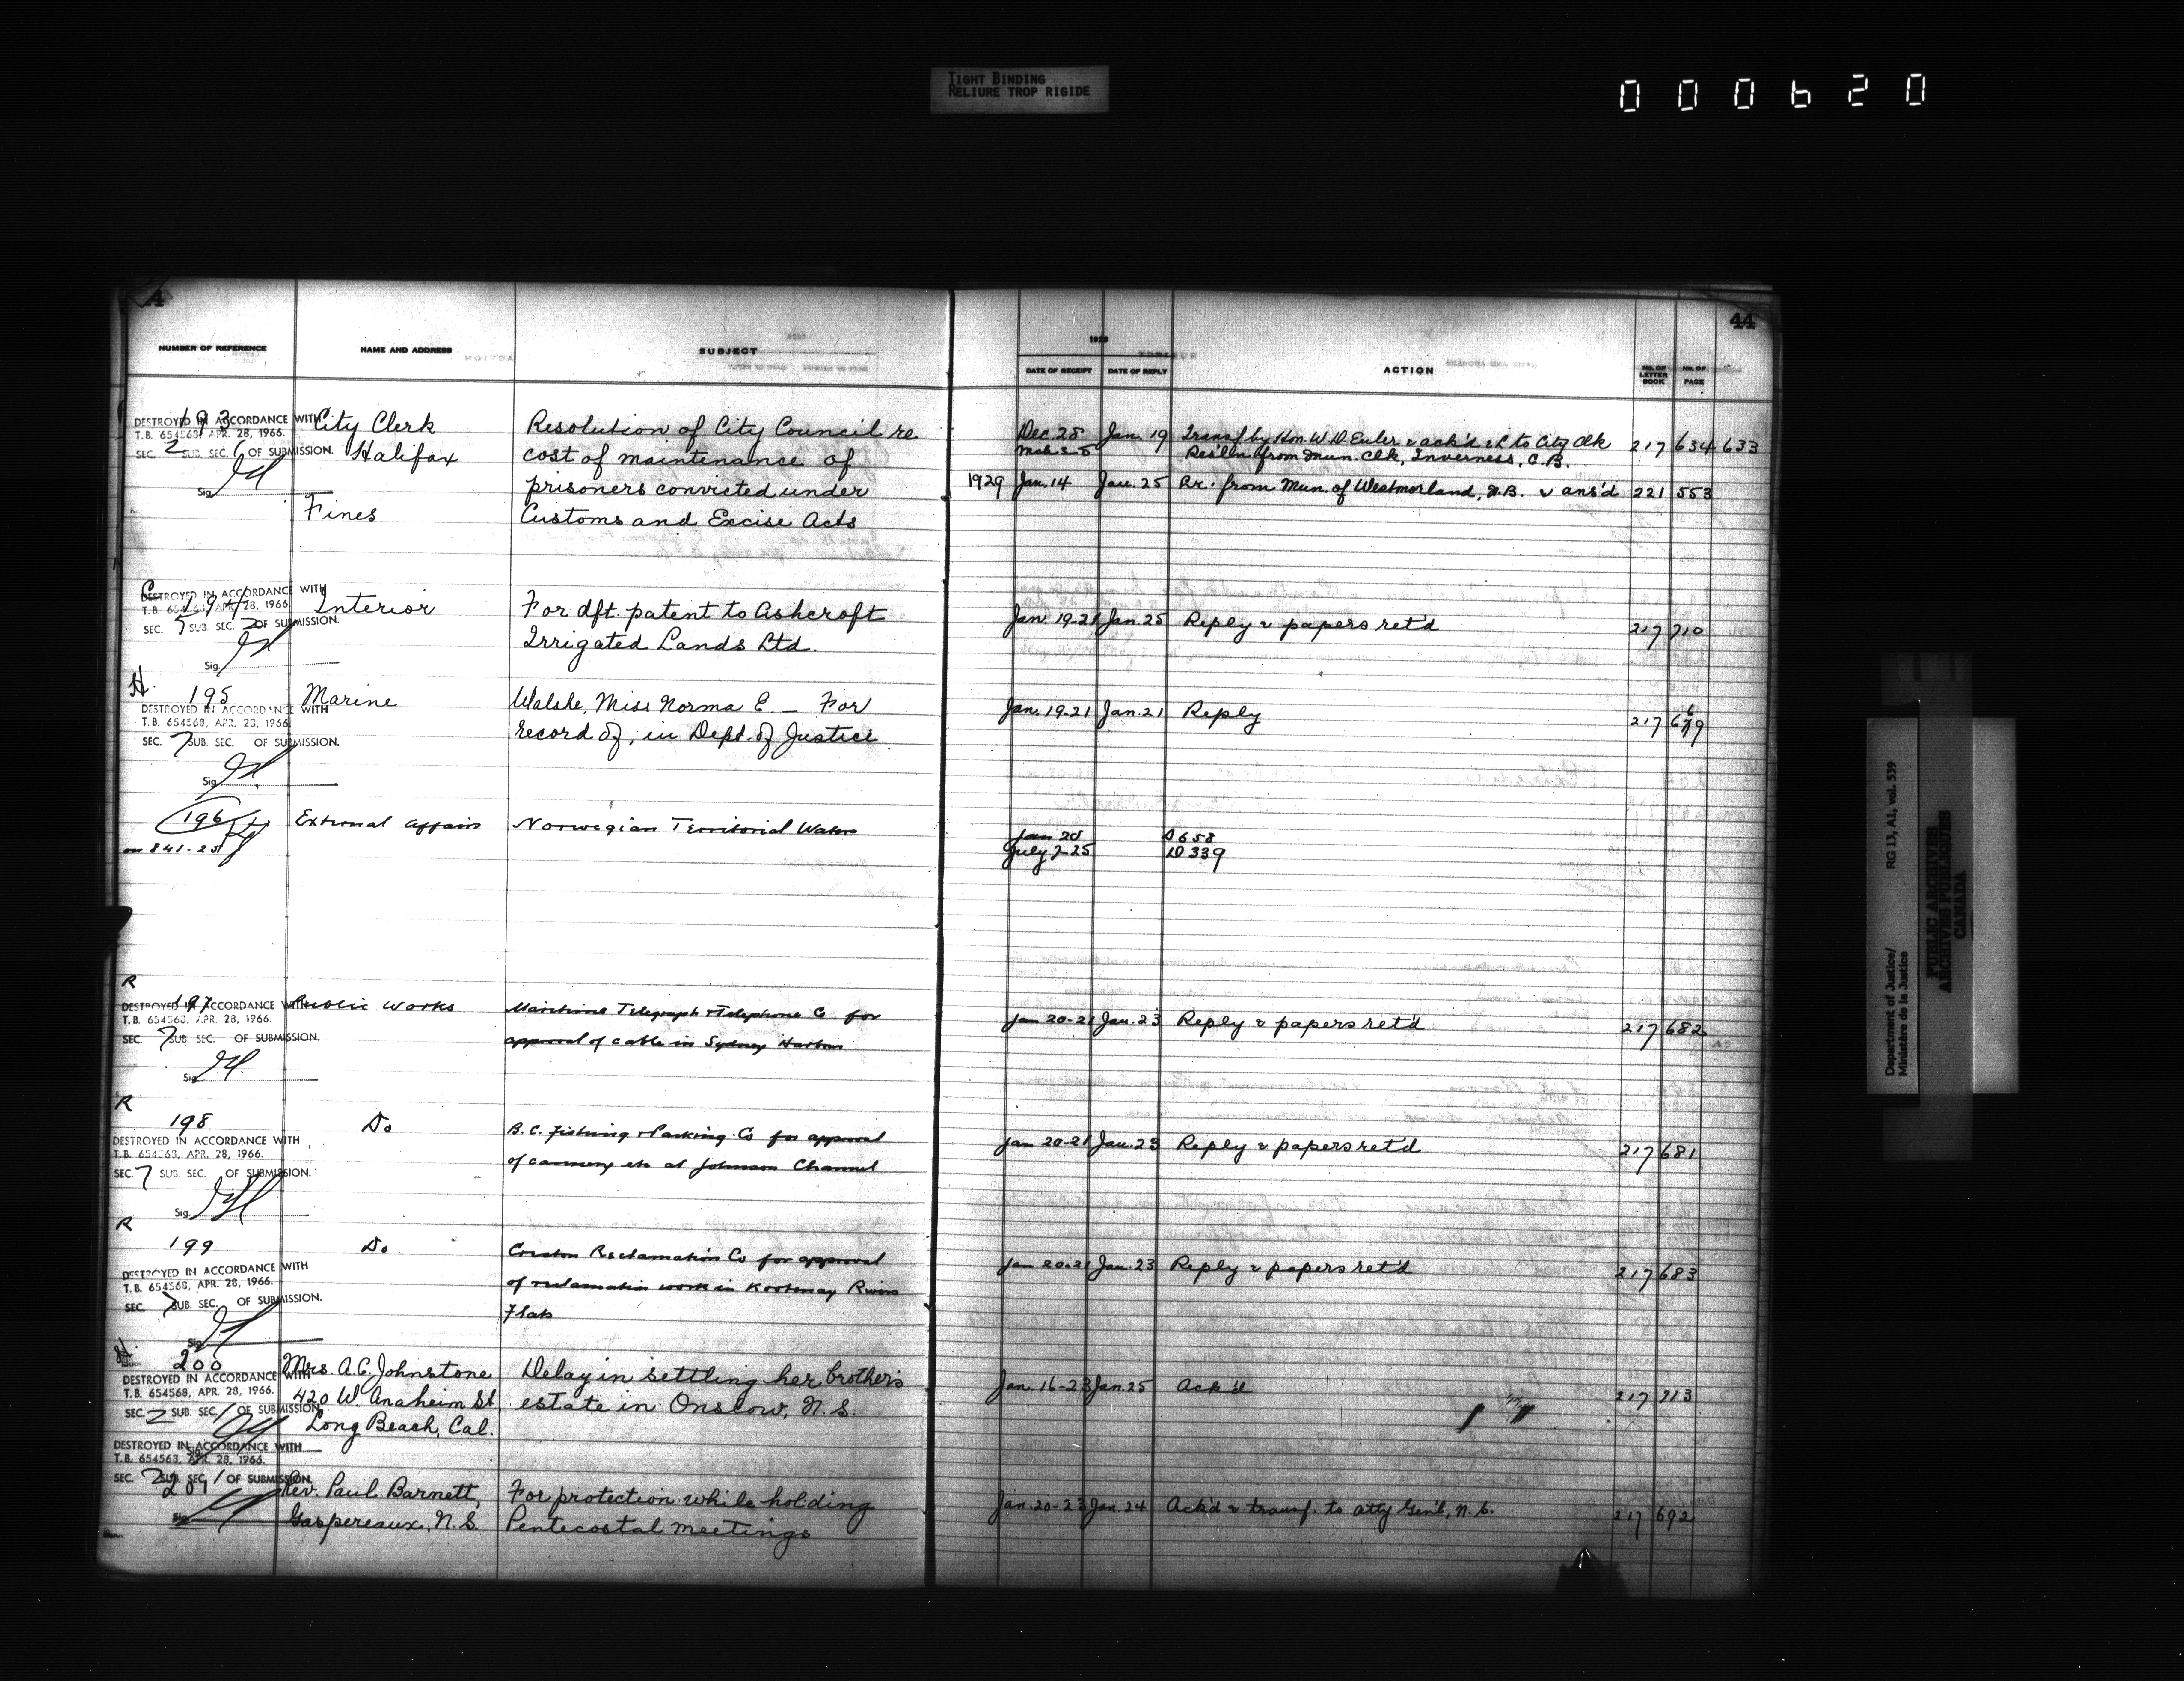 TIGHT BINDING
RELIURE TROP RIGIDE
000620
44
NUMBER OF REFERENCE NAME AND ADDRESS SUBJECT
1928
DATE OF RECEIPT DATE OF REPLY ACTION No. OF LETTER BOOK No. OF PAGE
193 City Clerk Resolution of City Council re Dec. 28 Jan. 19 Transf by Hon. W.D. Euler & ack'd & L to City Clk 217 634 633
DESTROYED IN ACCORDANCE WITH
T.B. 654568, APR. 28, 1966.
SEC. 2 SUB. SEC. 1 OF SUBMISSION.
Sig.
Halifax cost of maintenance of Res'l'n from Mun. Clk, Inverness, C.B.
prisoners convicted under 1929 Jan. 14 Jan. 25 Lr. from Mun. of Westmorland, N.B. & ans'd 221 553
Fines Customs and Excise Acts
C
194 Interior For dft. patent to Ashcroft Jan. 19-21 Jan. 25 Reply & papers ret'd 217 710
DESTROYED IN ACCORDANCE WITH
T.B. 654568, APR. 28, 1966.
SEC. 5 SUB. SEC. 2 OF SUBMISSION.
Sig.
Irrigated Lands Ltd.
H.
195 Marine Walshe, Miss Norma E. — For Jan. 19-21 Jan. 21 Reply 217 669
DESTROYED IN ACCORDANCE WITH
T.B. 654568, APR. 28, 1966.
SEC. 7 SUB. SEC. OF SUBMISSION.
Sig.
record of, in Dept. of Justice
196 External Affairs Norwegian Territorial Waters Jan 20 D 658
on 841-25 July 7-25 D 339
R
197 Public Works Maritime Telegraph & Telephone Co for Jan 20-21 Jan. 23 Reply & papers ret'd 217 682
DESTROYED IN ACCORDANCE WITH
T.B. 654568, APR. 28, 1966.
SEC. 7 SUB. SEC. OF SUBMISSION.
Sig.
approval of cable in Sydney Harbour
R
198 Do B.C. Fishing & Packing Co for approval Jan 20-21 Jan. 23 Reply & papers ret'd 217 681
DESTROYED IN ACCORDANCE WITH
T.B. 654568, APR. 28, 1966.
SEC. 7 SUB. SEC. OF SUBMISSION.
Sig.
of cannery etc at Johnson Channel
R
199 Do Creston Reclamation Co for approval Jan 20-21 Jan. 23 Reply & papers ret'd 217 683
DESTROYED IN ACCORDANCE WITH
T.B. 654568, APR. 28, 1966.
SEC. 7 SUB. SEC. OF SUBMISSION.
Sig.
of reclamation work in Kootenay River
Flats
H.
200 Mrs. A.C. Johnstone Delay in settling her brother's Jan. 16-23 Jan. 25 Ack'd 217 713
DESTROYED IN ACCORDANCE WITH
T.B. 654568, APR. 28, 1966.
SEC. 2 SUB. SEC. 1 OF SUBMISSION.
Sig.
420 W. Anaheim St. estate in Onslow, N.S.
Long Beach, Cal.
DESTROYED IN ACCORDANCE WITH
T.B. 654568, APR. 28, 1966.
SEC. 2 SUB. SEC. 1 OF SUBMISSION.
Sig.
201 Rev. Paul Barnett, For protection while holding Jan. 20-23 Jan. 24 Ack'd & transf. to Atty Gen'l, N.S. 217 692
Gaspereaux, N.S. Pentecostal meetings
Department of Justice/
Ministère de la Justice
RG 13, A1, vol. 539
PUBLIC ARCHIVES
ARCHIVES PUBLIQUES
CANADA